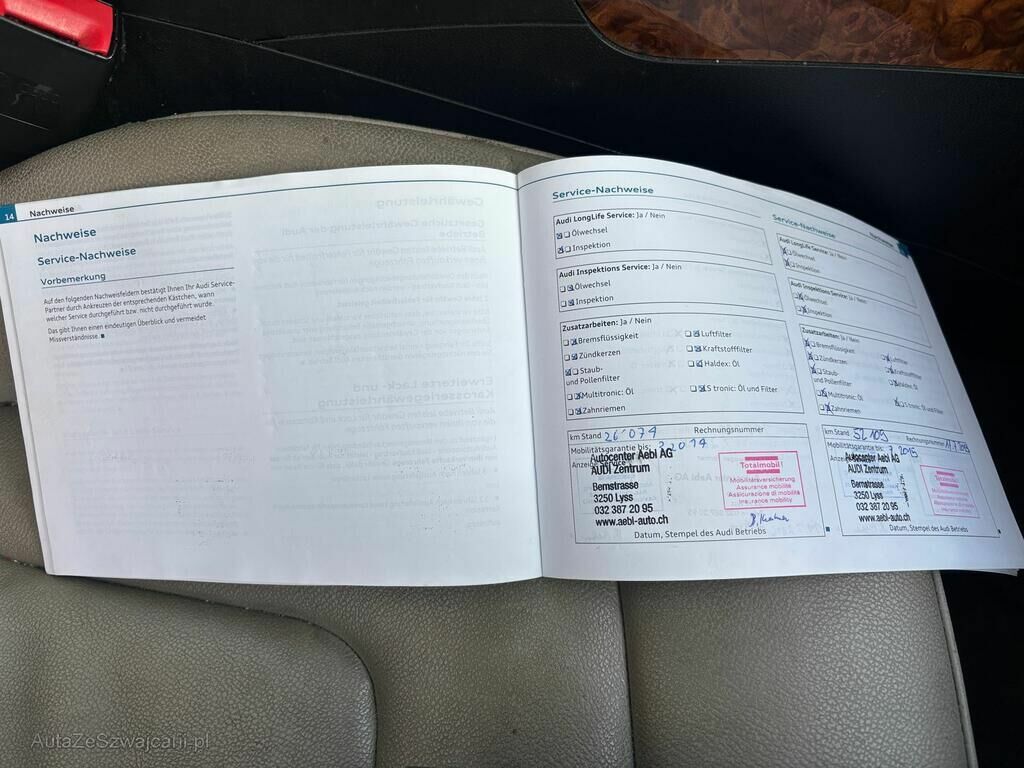 14 Nachweise
Nachweise
Service-Nachweise
Vorbemerkung
Auf den folgenden Nachweisfeldern bestätigt Ihnen Ihr Audi Service-
Partner durch Ankreuzen der entsprechenden Kästchen, wann
welcher Service durchgeführt bzw. nicht durchgeführt wurde.
Das gibt Ihnen einen eindeutigen Überblick und vermeidet
Missverständnisse.
Service-Nachweise
Audi LongLife Service: Ja / Nein
Ölwechsel
Inspektion
Audi Inspektions Service: Ja / Nein
Ölwechsel
Inspektion
Zusatzarbeiten: Ja / Nein
Bremsflüssigkeit
Luftfilter
Zündkerzen
Kraftstofffilter
Staub-
und Pollenfilter
Haldex: Öl
Multitronic: Öl
S tronic: Öl und Filter
Zahnriemen
km Stand 26'079 Rechnungsnummer
Mobilitätsgarantie bis: 2014
Autocenter Aebi AG
AUDI Zentrum
Bernstrasse
3250 Lyss
032 387 20 95
www.aebi-auto.ch
Totalmobil!
Mobilitätsversicherung
Assurance mobilité
Assicurazione di mobilità
Insurance mobility
Datum, Stempel des Audi Betriebs
Service-Nachweise
Nachweise
Audi LongLife Service: Ja / Nein
Ölwechsel
Inspektion
Audi Inspektions Service: Ja / Nein
Ölwechsel
Inspektion
Zusatzarbeiten: Ja / Nein
Bremsflüssigkeit
Luftfilter
Zündkerzen
Kraftstofffilter
Staub-
und Pollenfilter
Haldex: Öl
Multitronic: Öl
S tronic: Öl und Filter
Zahnriemen
km Stand 52'109 Rechnungsnummer
Mobilitätsgarantie bis: 2015
Autocenter Aebi AG
AUDI Zentrum
Bernstrasse
3250 Lyss
032 387 20 95
www.aebi-auto.ch
Totalmobil!
Mobilitätsversicherung
Assurance mobilité
Assicurazione di mobilità
Insurance mobility
Datum, Stempel des Audi Betriebs
AutaZeSzwajcarii.pl